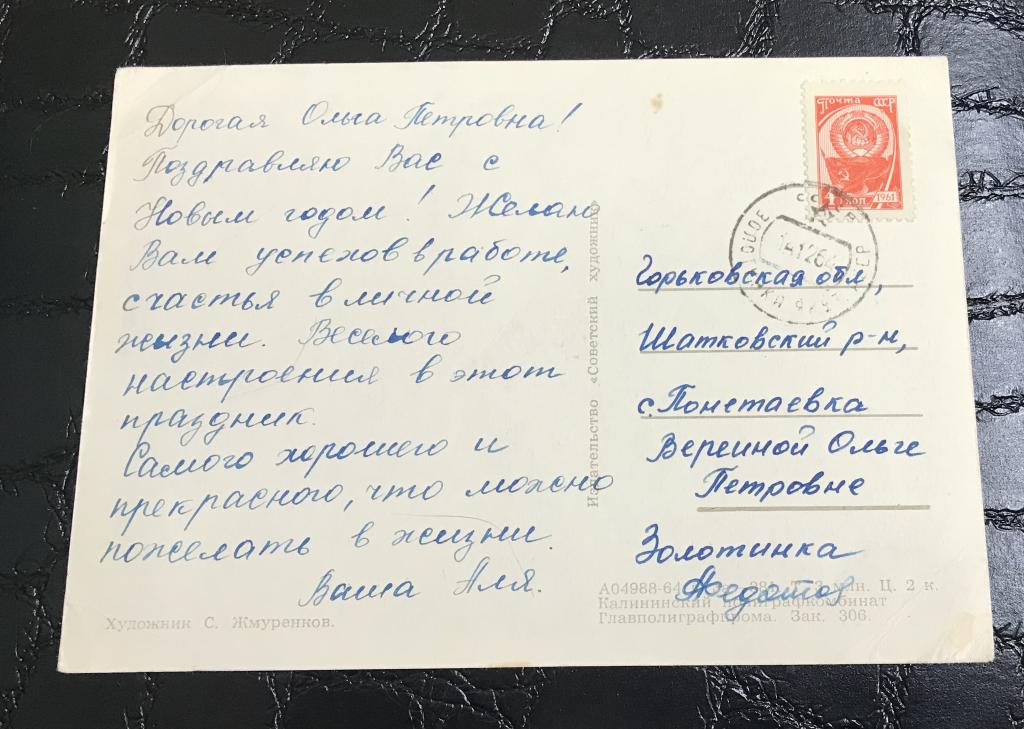 Дорогая Ольга Петровна!
Поздравляю Вас с
Новым годом! Желаю
Вам успехов в работе,
счастья в личной
жизни. Веселого
настроения в этот
праздник.
Самого хорошего и
прекрасного, что можно
пожелать в жизни.
Ваша Аля.
Художник С. Жмуренков.
Издательство «Советский художник»
Почта СССР
4 коп 1961
Горьковская обл,
Шатковский р-н,
с. Понетаевка
Вереиной Ольге
Петровне
Золотинка
А04988-64 3 млн. Ц. 2 к.
Калининский полиграфкомбинат
Главполиграфпрома. Зак. 306.